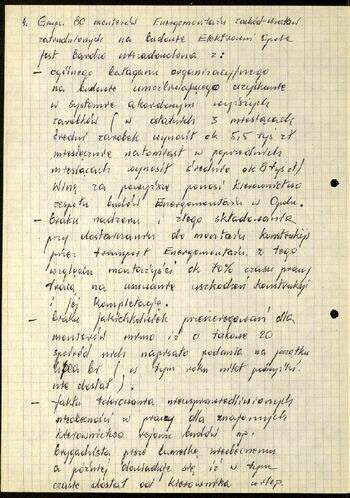 1. Grupa 80 monterów Energomontażu
zatrudnionych na budowie Elektrowni Opole
jest bardzo niezadowolona z:
- ogólnego bałaganu organizacyjnego
na budowie uniemożliwiającego uzyskanie
w systemie akordowym wyższych
zarobków (w ostatnich 3 miesiącach
średni zarobek wynosił ok 5,5 tyś zł
miesięcznie natomiast w poprzednich
miesiącach wynosił średnio ok 8 tyś zł)
Winę za powyższe ponosi kierownictwo
zespołu budów Energomontażu w Opolu.
- braku nadzoru i złego składowania
przy dostarczaniu do montażu konstrukcji
przez transport Energomontażu, z tego
względu monterzy ok 40% czasu pracy
tracą na usuwanie uszkodzeń konstrukcji
i jej kompletację.
- braku jakichkolwiek przeszeregowań dla
monterów mimo iż o takowe 20
spośród nich napisało podania na początku
lipca br (w tym roku nikt podwyżki
nie dostał).
- faktu tolerowania nieusprawiedliwionych
nieobecności w pracy dla znajomych
kierownictwa rejonu budów np.
brygadzista pisze nieobecnemu
a później dowiaduje się iż w tym
czasie dostał od kierownika urlop.